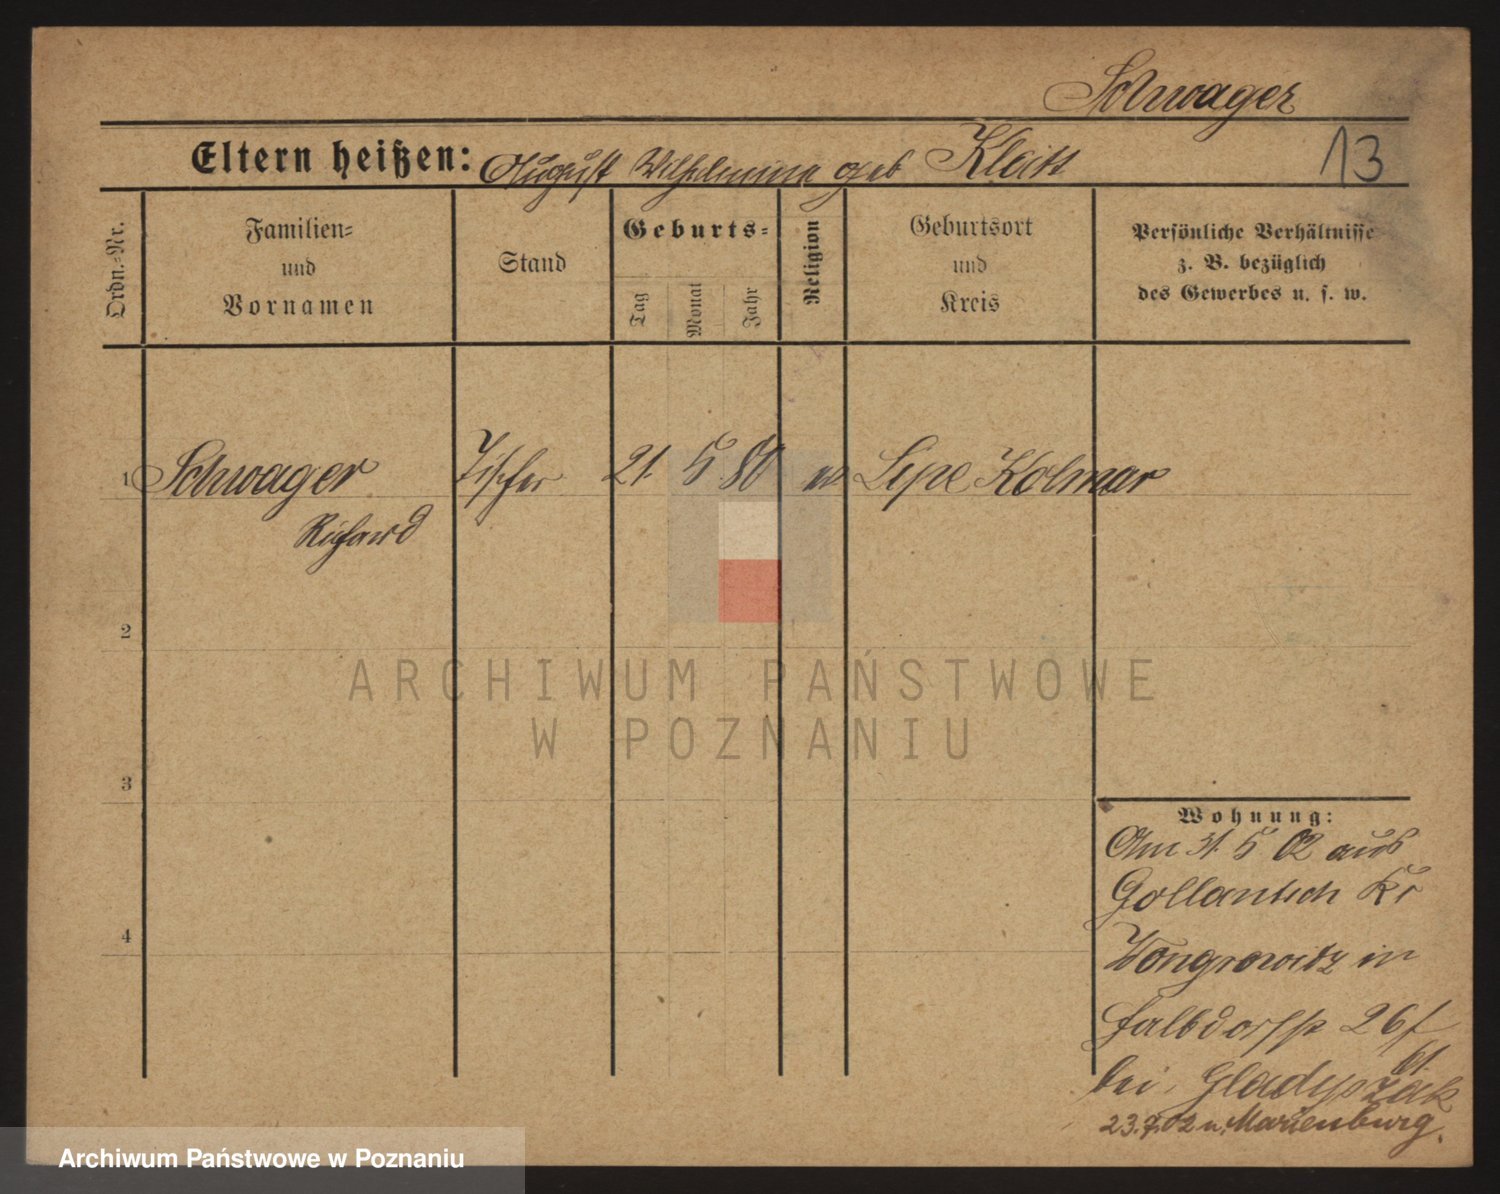 Schwager
Eltern heißen: August Wilhelmine geb Klatt
13
Ordn.-Nr.
Familien-
und
Vornamen
Stand
Geburts-
Tag
Monat
Jahr
Religion
Geburtsort
und
Kreis
Persönliche Verhältnisse
z. B. bezüglich
des Gewerbes u. s. w.
1 Schwager Tischler 21. 5 80 ev Lipe Kolmar
Richard
2
ARCHIWUM PAŃSTWOWE
W POZNANIU
3
Wohnung:
Am 31. 5 02 aus
Gollantsch Kr
Wongrowitz in
Halbdorfstr 26 f
bei Gladyszak
23.7.02 n. Marienburg.
4
Archiwum Państwowe w Poznaniu